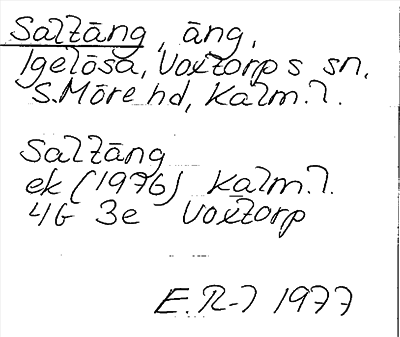 Saltäng, äng,
Igelösa, Voxtorps sn,
S. Möre hd, Kalm. l.
Saltäng
ek (1976) Kalm. l.
4G 3e Voxtorp
E. R-l 1977